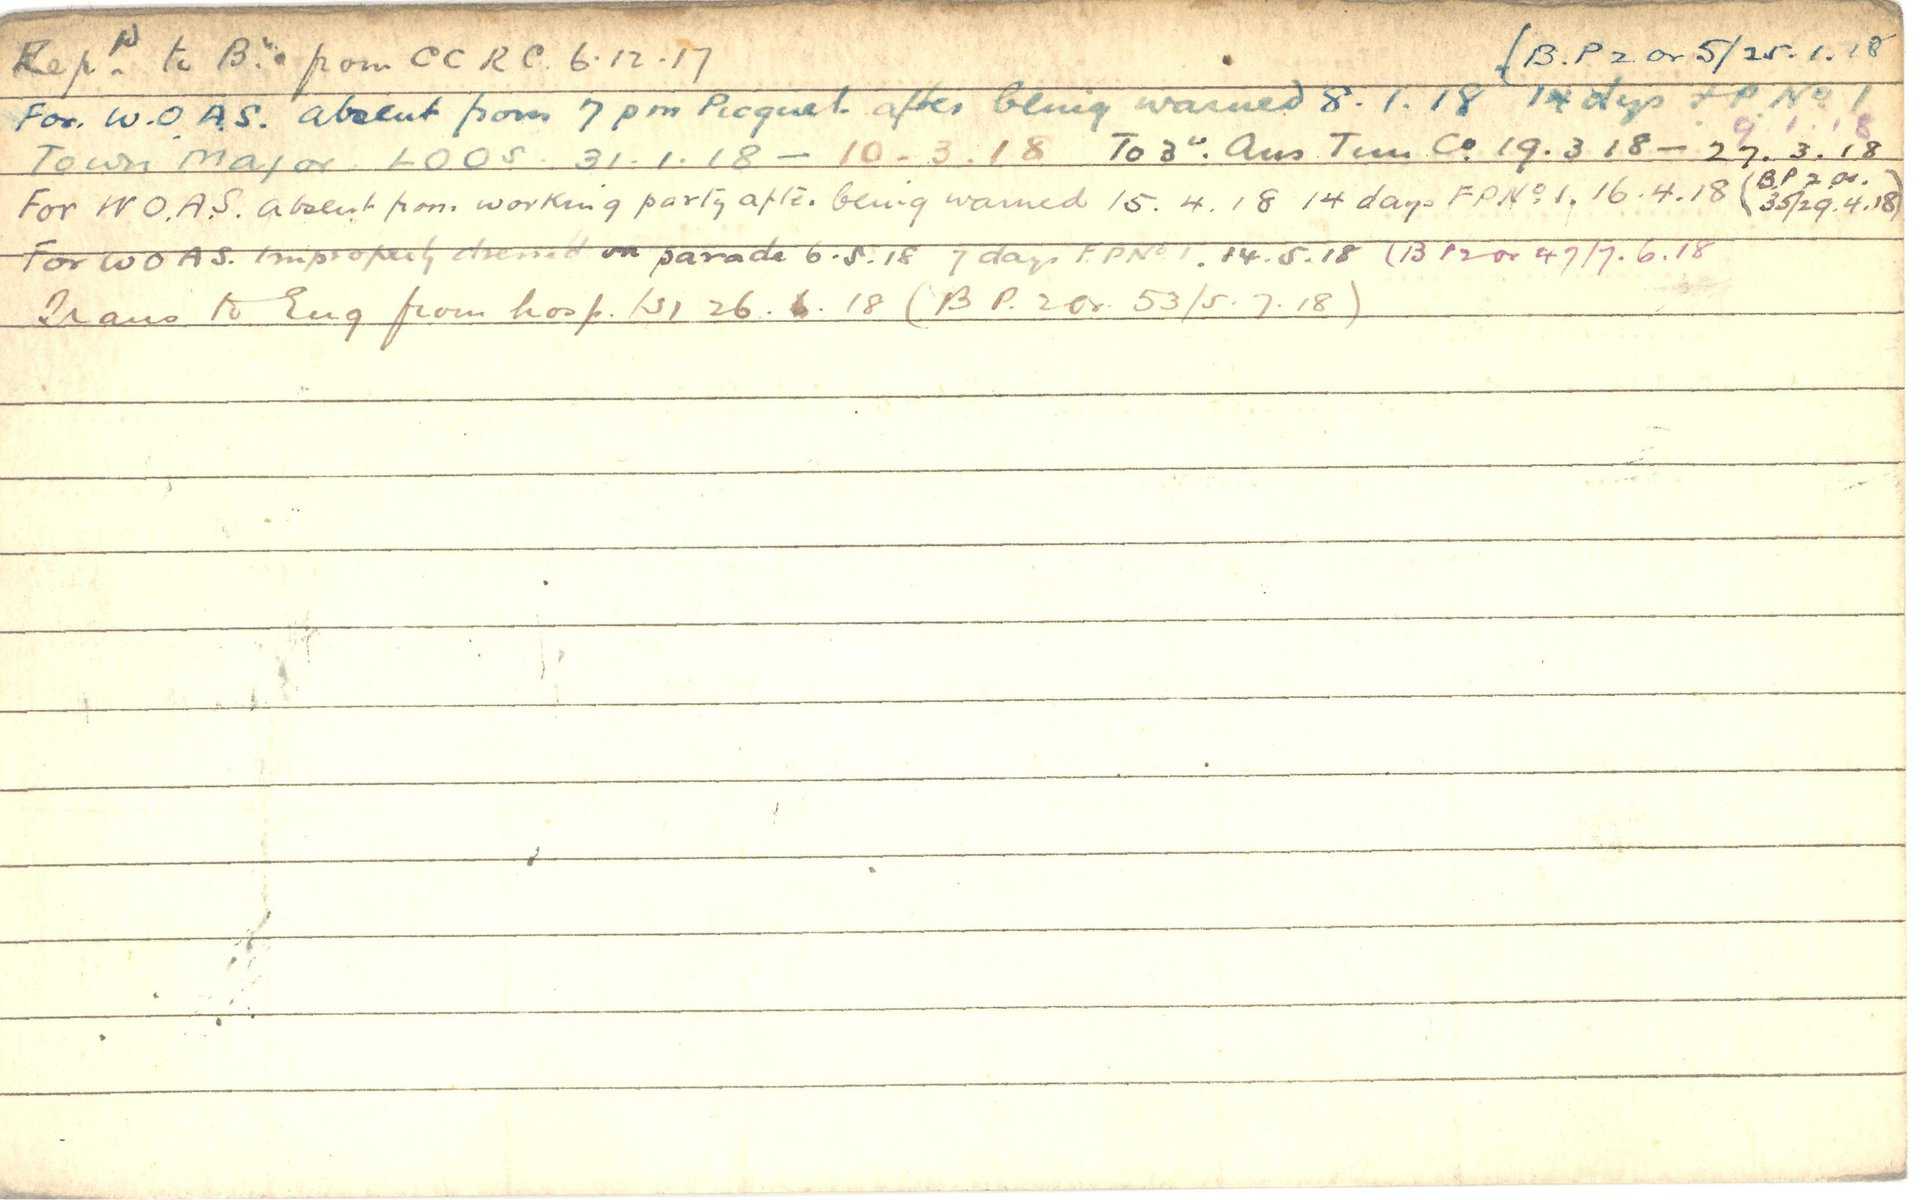 Rep.d to B.n from CCRC. 6.12.17 (B.P 2 or 5/25.1.18
For. W.O.A.S. absent from 7 pm Picquet after being warned 8.1.18 14 dys F.P. No 1
9.1.18
Town Major LOOS 31.1.18 – 10.3.18 To 3rd. Aus Tun Co. 19.3 18 – 27.3.18
For W O.A.S. absent from working party after being warned 15.4.18 14 days F P No 1. 16.4.18 (B.P 2 or. 35/29.4.18)
For W O A S. Improperly dressed on parade 6.5.18 7 days F.P No 1. 14.5.18 (B P 2 or 47/7.6.18
Trans to Eng from hosp. 26.6.18 (B P. 2 or. 53/5.7.18)